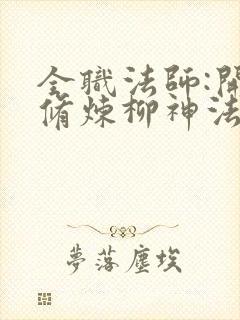 全職法師:開
脩煉柳神法
夢落塵埃